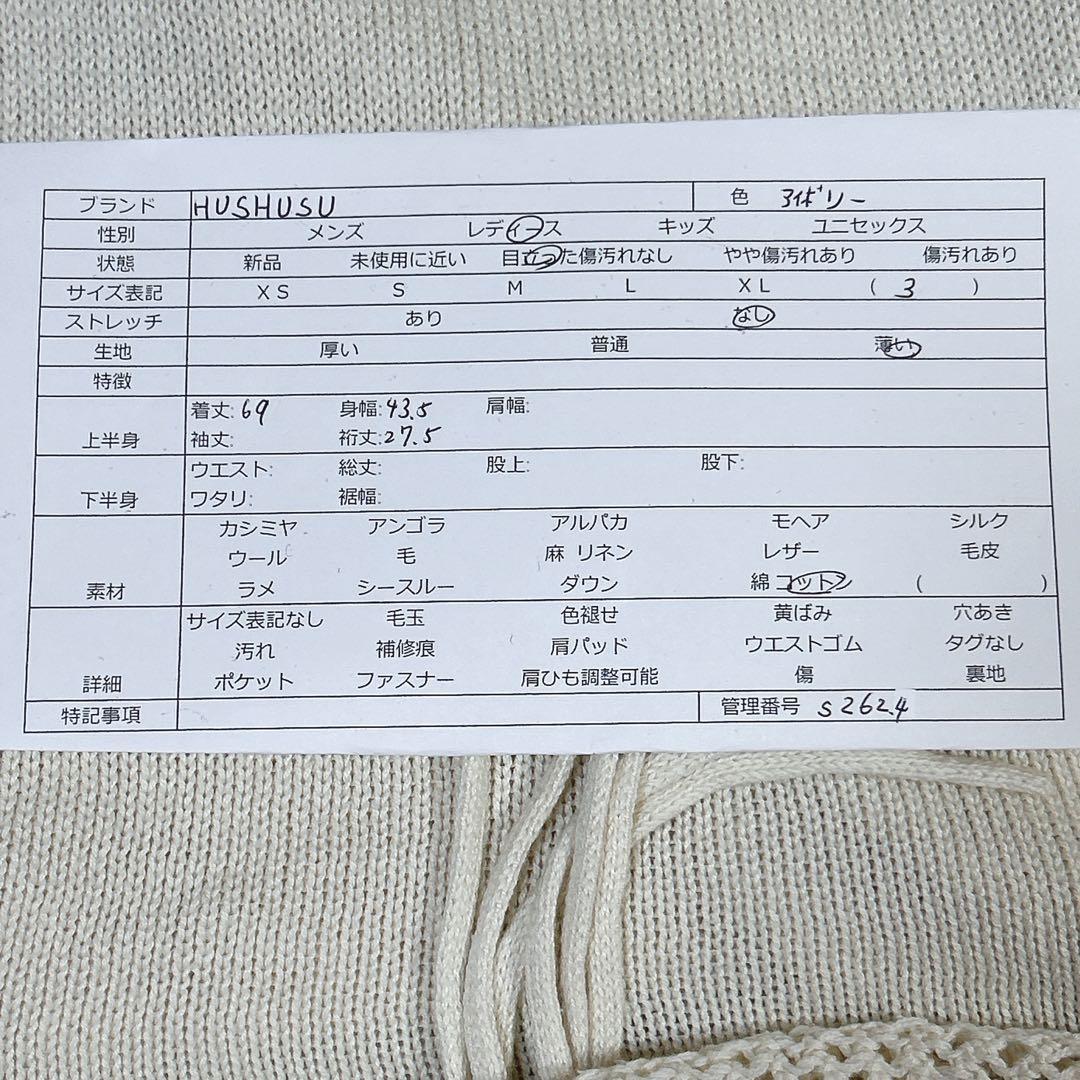 ブランド HUSHUSU 色 アイボリー
性別 メンズ レディース キッズ ユニセックス
状態 新品 未使用に近い 目立った傷汚れなし やや傷汚れあり 傷汚れあり
サイズ表記 XS S M L XL ( 3 )
ストレッチ あり なし
生地 厚い 普通 薄い
特徴
着丈: 69 身幅: 43.5 肩幅:
上半身 袖丈: 裄丈: 27.5
ウエスト: 総丈: 股上: 股下:
下半身 ワタリ: 裾幅:
カシミヤ アンゴラ アルパカ モヘア シルク
ウール 毛 麻 リネン レザー 毛皮
素材 ラメ シースルー ダウン 綿 コットン ( )
サイズ表記なし 毛玉 色褪せ 黄ばみ 穴あき
汚れ 補修痕 肩パッド ウエストゴム タグなし
詳細 ポケット ファスナー 肩ひも調整可能 傷 裏地
特記事項 管理番号 s2624